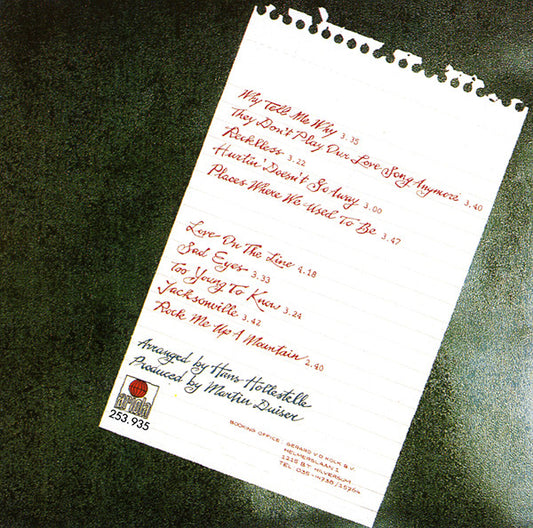 Why Tell Me Why 3.35
They Don't Play Our Love Song Anymore 3.40
Reckless 3.22
Hurtin' Doesn't Go Away 3.00
Places Where We Used To Be 3.47
Love On The Line 4.18
Sad Eyes 3.33
Too Young To Know 3.24
Jacksonville 3.42
Rock Me Up A Mountain 2.40
Arranged by Hans Hollestelle
Produced by Martin Duiser
ariola
253.935
BOOKING OFFICE: GERARD V D KOLK B.V.
HELMERSLAAN 1
HILVERSUM
TEL. 035 -